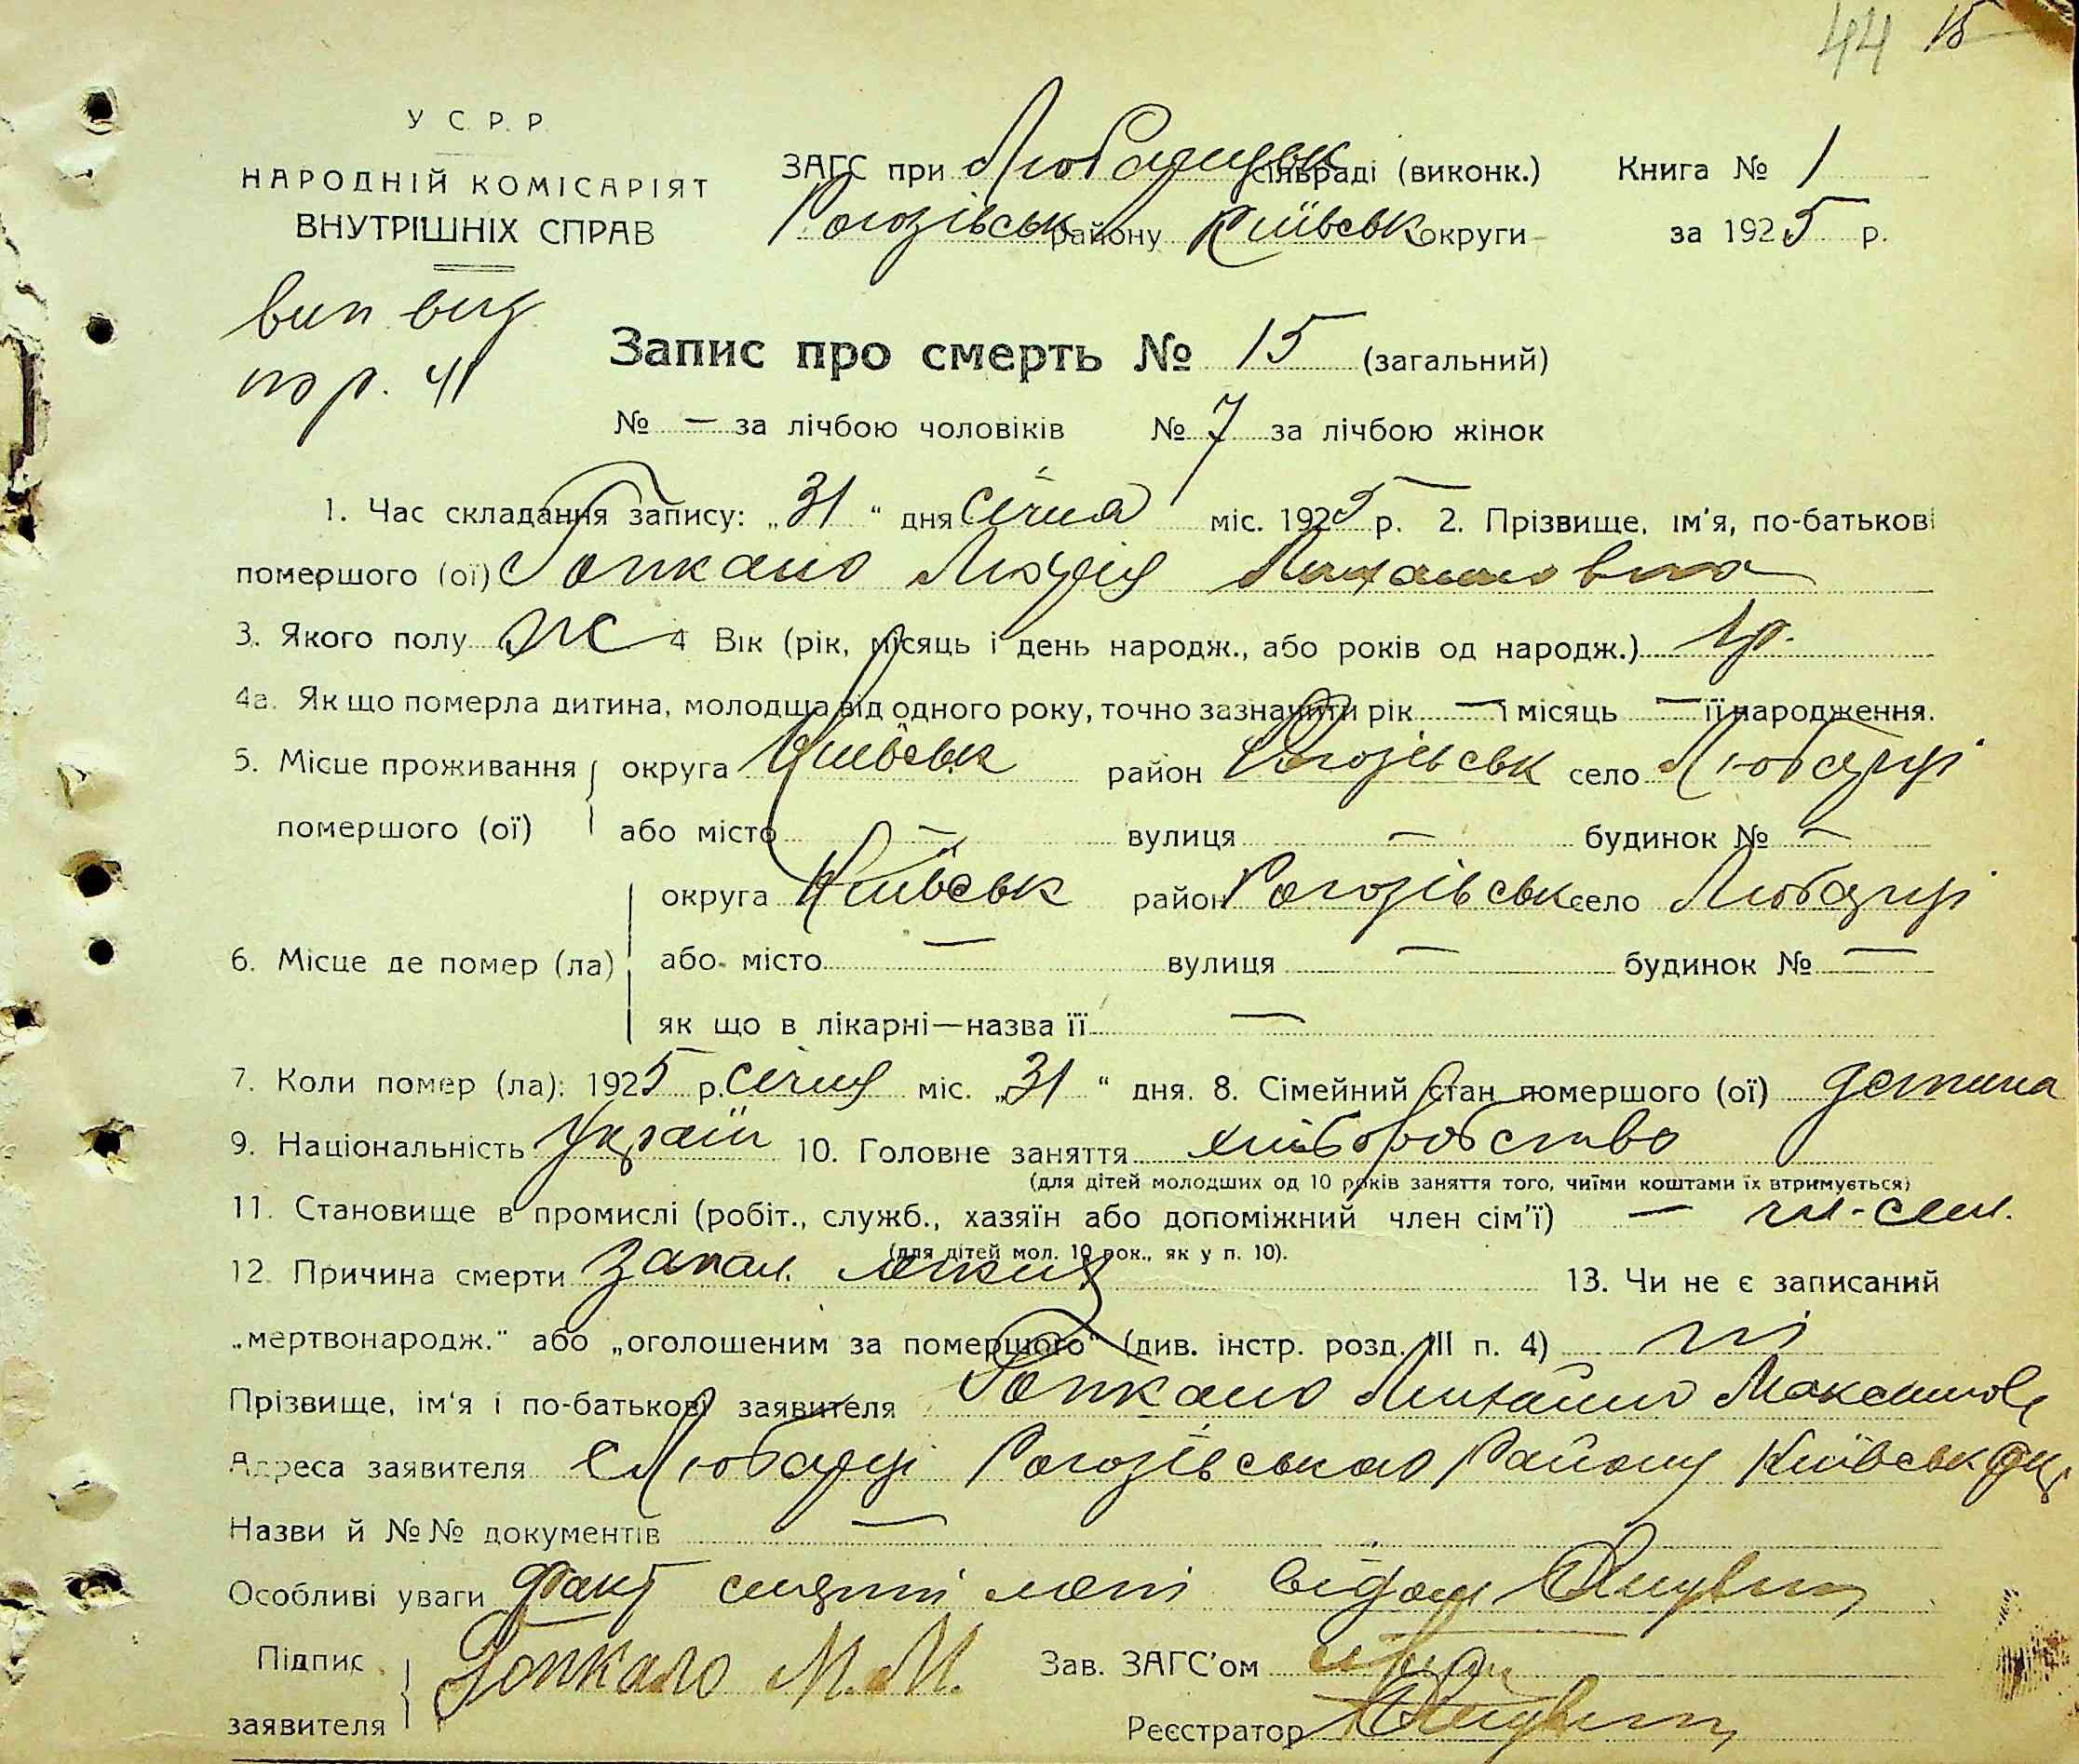 44 15
У С. Р. Р.
НАРОДНІЙ КОМІСАРІЯТ
ВНУТРІШНІХ СПРАВ
ЗАГС при Любарецьк сільраді (виконк.) Книга № 1
Рогозівськ району Київськ округи за 1925 р.
вип вид
41
Запис про смерть № 15 (загальний)
№ — за лічбою чоловіків № 7 за лічбою жінок
1. Час складання запису: „31“ дня січня міс. 1925 р. 2. Прізвище, ім'я, по-батькові
помершого (ої) Гопкало Михайловна
3. Якого полу ж 4 Вік (рік, місяць і день народж., або років од народж.) 1 р.
4а. Як що померла дитина, молодша від одного року, точно зазначити рік — і місяць — її народження.
5. Місце проживання помершого (ої) округа Київськ район Рогозівськ село Любарці
або місто — вулиця — будинок № —
6. Місце де помер (ла) округа Київськ район Рогозівськ село Любарці
або місто — вулиця — будинок № —
як що в лікарні—назва її —
7. Коли помер (ла): 1925 р. січня міс. „31“ дня. 8. Сімейний стан помершого (ої) детина
9. Національність Україн 10. Головне заняття хліборобство
(для дітей молодших од 10 років заняття того, чиїми коштами їх втримується)
11. Становище в промислі (робіт., служб., хазяїн або допоміжний член сім'ї) —
(для дітей мол. 10 рок., як у п. 10).
12. Причина смерти запал. легких 13. Чи не є записаний
„мертвонародж.“ або „оголошеним за помершого“ (див. інстр. розд. III п. 4) ні
Прізвище, ім'я і по-батькові заявителя Гопкало Михайло Максимов
Адреса заявителя с Любарці Рогозівського Району Київськ окр
Назви й №№ документів —
Особливі уваги Факт смерті мені відом
Підпис заявителя Гопкало М. М. Зав. ЗАГС'ом
Реєстратор